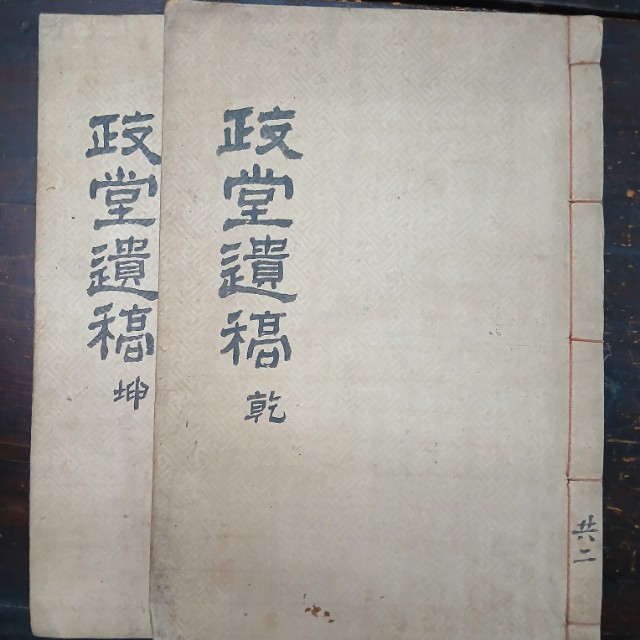 政堂遺稿 乾
共二
政堂遺稿 坤